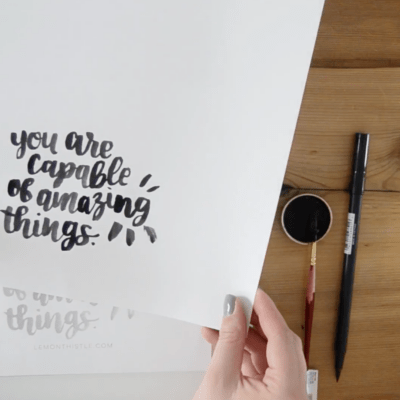 you are
capable
of amazing
things.
of amazing
things.
LEMONTHISTLE.COM